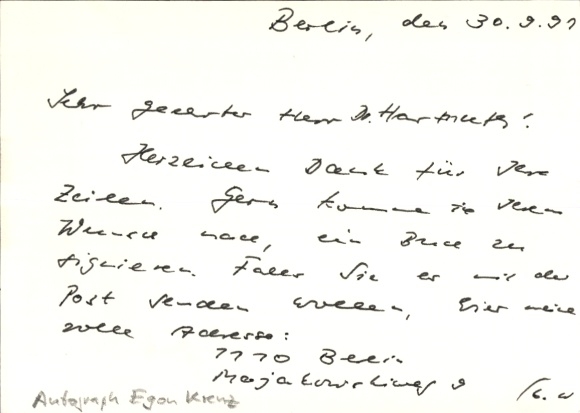 Berlin, den 30.9.91
Sehr geehrter Herr Dr. Hartmuth!
Herzlichen Dank für Ihre
Zeilen. Gern komme ich Ihrem
Wunsch nach, ein Buch zu
signieren. Falls Sie es mit der
Post senden wollen, hier meine
volle Adresse:
1110 Berlin
Majakowskiweg 9
Autograph Egon Krenz